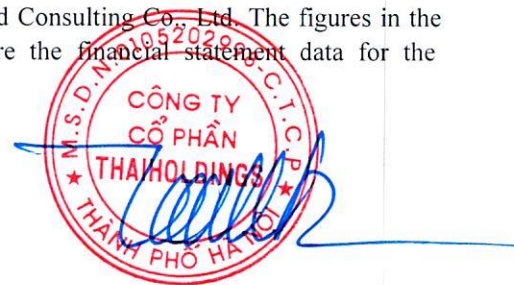 d Consulting Co., Ltd. The figures in the
re the financial statement data for the
M.S.D.N:0105202998-C.T.C.P
CÔNG TY
CỔ PHẦN
THAIHOLDINGS
THÀNH PHỐ HÀ NỘI